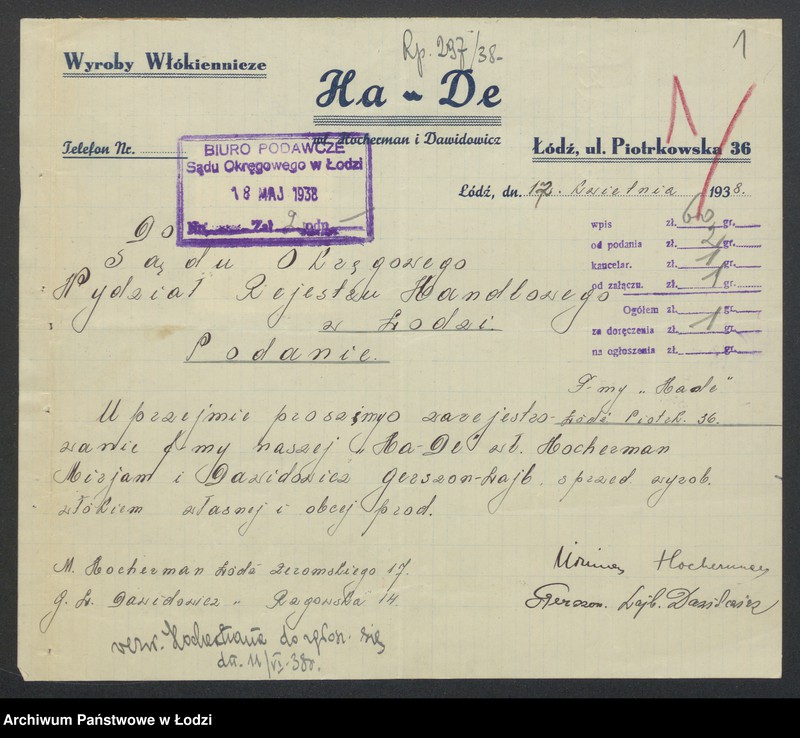 Rp. 297/38-
1
Wyroby Włókiennicze
Ha-De
wł. Hocherman i Dawidowicz
Telefon Nr.
Łódź, ul. Piotrkowska 36
BIURO PODAWCZE
Sądu Okręgowego w Łodzi
18 MAJ 1938
Nr. Zał. 9 rodn. 1
Łódź, dn. 17. kwietnia 1938.
wpis zł. 60 gr.
od podania zł. 2 gr.
kancelar. zł. 1 gr.
od załączn. zł. 1 gr.
Ogółem gr.
za doręczenia zł. 1 gr.
na ogłoszenia zł. gr.
Do
Sądu Okręgowego
Wydział Rejestru Handlowego
w Łodzi.
Podanie.
F-my "Hade"
Łódź Piotrk. 36.
Uprzejmie prosimy o zarejestro-
wanie f-my naszej "Ha-De" wł. Hocherman
Mirjam i Dawidowicz Gerszon-Lajb. sprzed. wyrob.
włókiem własnej i obcej prod.
M. Hocherman Łódź Żeromskiego 17.
G. L. Dawidowicz " Rzgowska 14.
Hocherman
Gerszon. Lajb. Dawidowicz
wezw. Hochermana do zgłosz. się
dn. 11/VI-38r.
Archiwum Państwowe w Łodzi